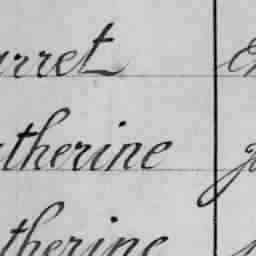 urret
atherine
therine